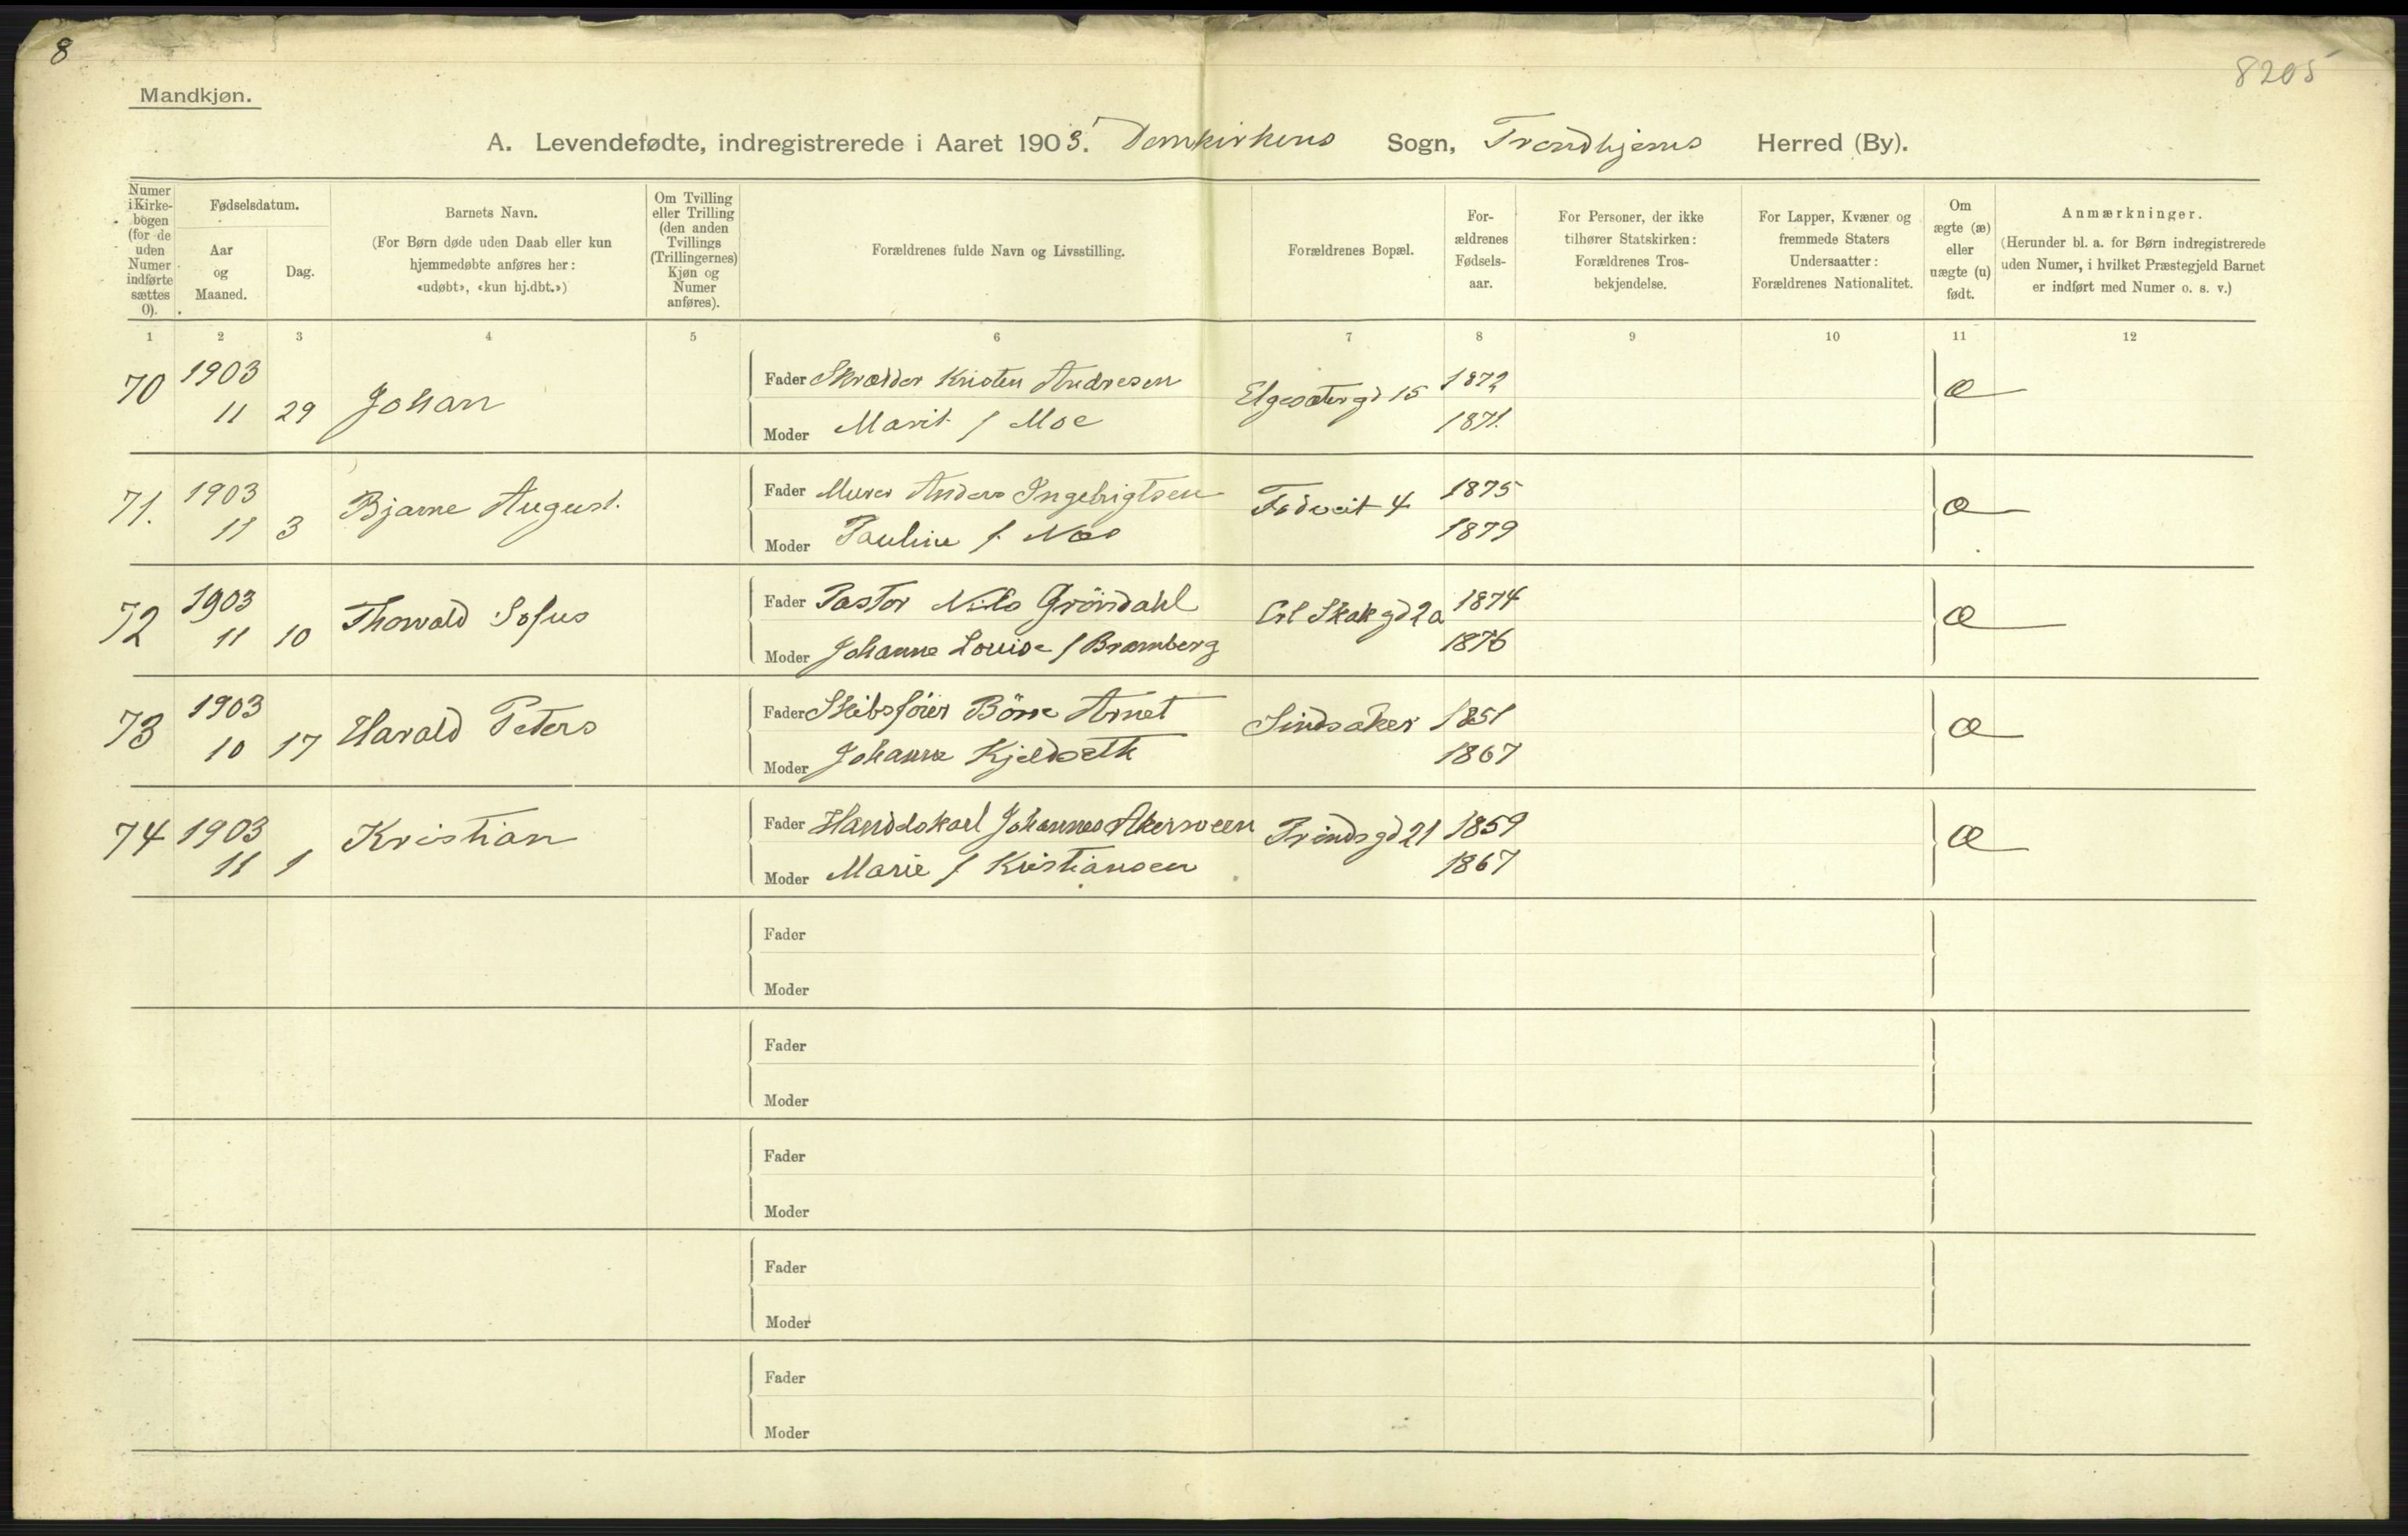 8
8205
Mandkjøn.
A. Levendefødte, indregistrerede i Aaret 1903. Domkirkens Sogn, Trondhjems Herred (By).
Numer i Kirkebogen (for de uden Numer indførte sættes 0).
Fødselsdatum.
Aar og Maaned.
Dag.
Barnets Navn.
(For Børn døde uden Daab eller kun
hjemmedøbte anføres her:
«udøbt», «kun hj.dbt.»)
Om Tvilling
eller Trilling
(den anden
Tvillings
(Trillingernes)
Kjøn og
Numer
anføres).
Forældrenes fulde Navn og Livsstilling.
Forældrenes Bopæl.
For-
ældrenes
Fødsels-
aar.
For Personer, der ikke
tilhører Statskirken:
Forældrenes Tros-
bekjendelse.
For Lapper, Kvæner og
fremmede Staters
Undersaatter:
Forældrenes Nationalitet.
Om
ægte (æ)
eller
uægte (u)
født.
Anmærkninger.
(Herunder bl. a. for Børn indregistrerede
uden Numer, i hvilket Præstegjeld Barnet
er indført med Numer o. s. v.)
1 2 3 4 5 6 7 8 9 10 11 12
70 1903 11 29 Johan
Fader Skrædder Kristen Andresen Elgesætergd 15 1872 æ
Moder Marit f Moe 1871.
71. 1903 11 3 Bjarne August.
Fader Murer Anders Ingebrigtsen 4 1875 æ
Moder Pauline f. Næs 1879
72 1903 11 10 Thorvald Sofus
Fader Pastor Nils Gröndahl Erl Skak gd 2a 1874 æ
Moder Johanne Louise f Bramberg 1876
73 1903 10 17 Harald Peters
Fader Skibsfører Börre Arnet Sindsaker 1851 æ
Moder Johanna Kjeldseth 1867
74 1903 11 1 Kristian
Fader Handelskarl Johannes Akersveen Prindsgd 21 1859 æ
Moder Marie f Kristiansen 1867
Fader
Moder
Fader
Moder
Fader
Moder
Fader
Moder
Fader
Moder